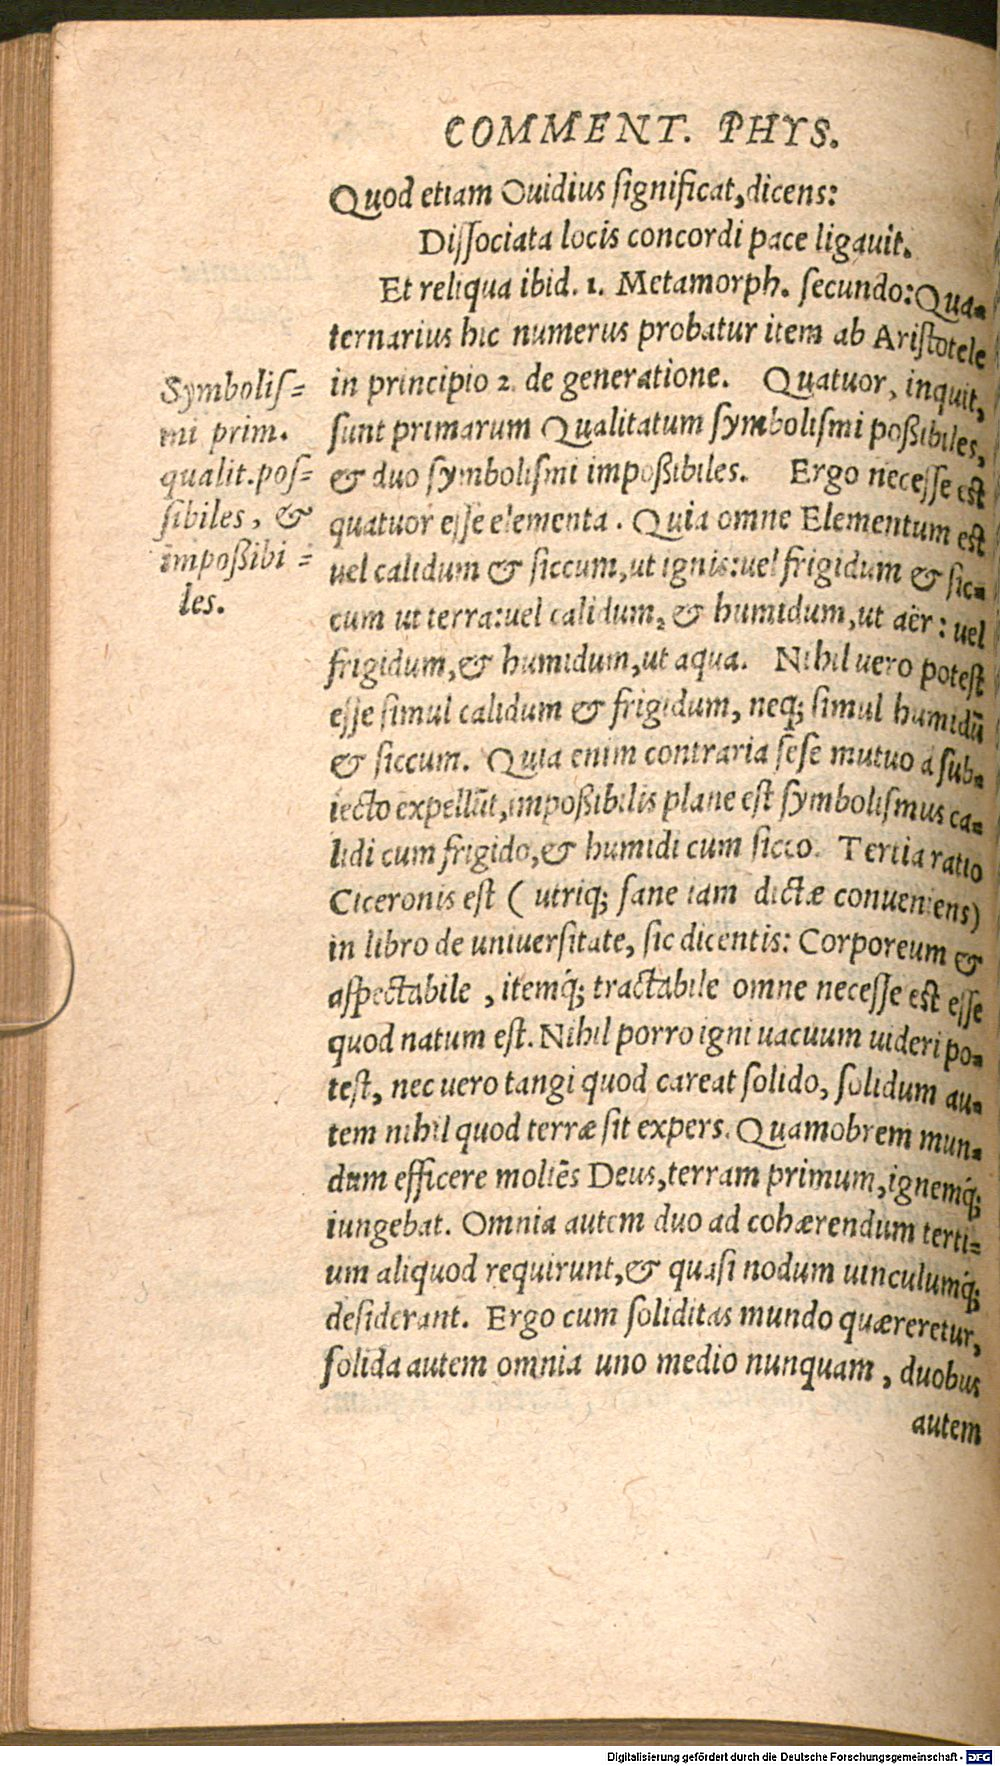 COMMENT. PHYS.
Quod etiam Ouidius ſignificat, dicens:
Diſſociata locis concordi pace ligauit.
Et reliqua ibid. 1. Metamorph. ſecundo: Qua-
ternarius hic numerus probatur item ab Ariſtotele
in principio 2. de generatione. Quatuor, inquit,
ſunt primarum Qualitatum ſymboliſmi poßibiles,
& duo ſymboliſmi impoßibiles. Ergo neceſſe eſt
quatuor eſſe elementa. Quia omne Elementum eſt
uel calidum & ſiccum, ut ignis: uel frigidum & ſic-
cum ut terra: uel calidum, & humidum, ut aër: uel
frigidum, & humidum, ut aqua. Nihil uero poteſt
eſſe ſimul calidum & frigidum, neq; ſimul humidū
& ſiccum. Quia enim contraria ſeſe mutuo à ſub-
iecto expellūt, impoßibilis plane eſt ſymboliſmus ca-
lidi cum frigido, & humidi cum ſicco. Tertia ratio
Ciceronis eſt ( utriq; ſane iam dictæ conueniens)
in libro de uniuerſitate, ſic dicentis: Corporeum &
aſpectabile, itemq́; tractabile omne neceſſe eſt eſſe
quod natum eſt. Nihil porro igni uacuum uideri po-
teſt, nec uero tangi quod careat ſolido, ſolidum au-
tem nihil quod terræ ſit expers. Quamobrem mun-
dum efficere moliēs Deus, terram primum, ignemq́;
iungebat. Omnia autem duo ad cohærendum terti-
um aliquod requirunt, & quaſi nodum uinculumq́;
deſiderant. Ergo cum ſoliditas mundo quæreretur,
ſolida autem omnia uno medio nunquam, duobus
autem
Symboliſ-
mi prim.
qualit. poſ-
ſibiles, &
impoßibi-
les.
Digitalisierung gefördert durch die Deutsche Forschungsgemeinschaft - DFG